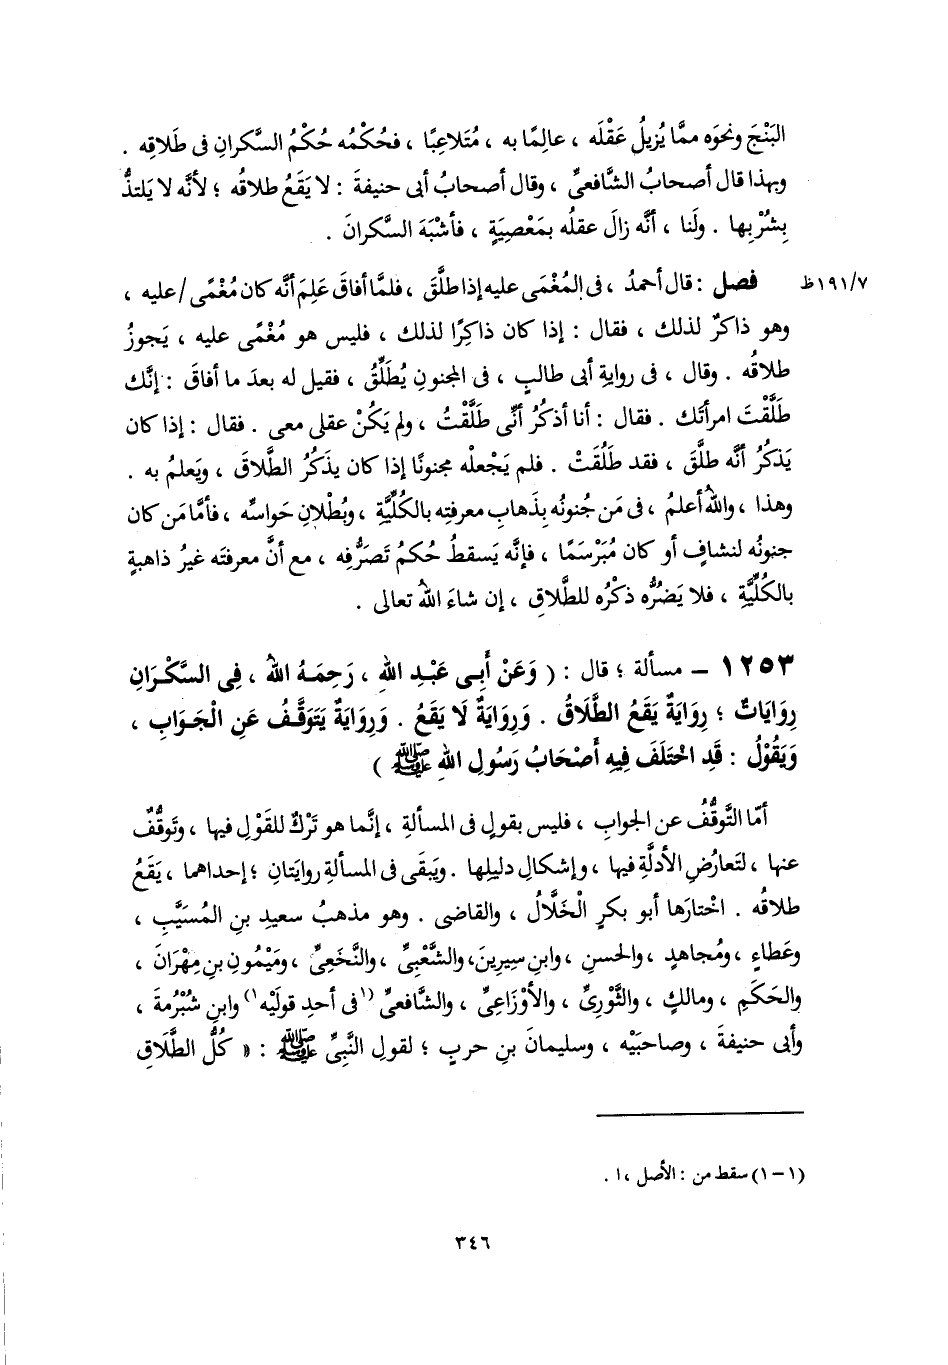 البَنْجَ ونحوَه ممَّا يُزيلُ عَقْلَه ، عالِمًا به ، مُتَلاعِبًا ، فحُكْمُه حُكْمُ السَّكرانِ فى طَلاقِه .
وبهذا قال أصحابُ الشَّافعىِّ ، وقال أصحابُ أبى حنيفةَ : لا يَقَعُ طلاقُه ؛ لأنَّه لا يَلتذُّ
بشُرْبِها . ولَنا ، أنَّه زالَ عقلُه بمَعْصِيَةٍ ، فأشْبَهَ السَّكرانَ .
١٩١/٧ظ
فصل : قال أحمدُ ، فى المُغْمَى عليه إذا طلَّقَ ، فلمَّا أفاقَ عَلِمَ أنَّه كان مُغْمًى /عليه ،
وهو ذاكرٌ لذلك ، فقال : إذا كان ذاكِرًا لذلك ، فليس هو مُغْمًى عليه ، يَجوزُ
طلاقُه . وقال ، فى روايةِ أبى طالبٍ ، فى المجنونِ يُطَلِّقُ ، فقيل له بعدَ ما أفاقَ : إنَّك
طَلَّقْتَ امرأتَك . فقال : أنا أذكُرُ أنِّى طَلَّقْتُ ، ولم يَكُنْ عقلى معى . فقال : إذا كان
يَذكُرُ أنَّه طلَّق ، فقد طَلُقَتْ . فلم يَجْعلْه مجنونًا إذا كان يذكُرُ الطَّلاقَ ، ويَعلمُ به .
وهذا ، واللهُ أعلمُ ، فى مَن جُنونُه بذَهابِ معرفتِه بالكُلِّيَّةِ ، وبُطْلانِ حَواسِّه ، فأمَّا مَن كان
جنونُه لنشافٍ أو كان مُبَرْسَمًا ، فإنَّه يَسقطُ حُكمُ تَصَرُّفِه ، مع أنَّ معرفتَه غيرُ ذاهبةٍ
بالكُلِّيَّةِ ، فلا يَضُرُّه ذكْرُه للطَّلاقِ ، إن شاءَ اللهُ تعالى .
١٢٥٣ – مسألة ؛ قال : ( وَعَنْ أَبِى عَبْدِ اللهِ ، رَحِمَهُ اللهُ ، فِى السَّكْرَانِ
رِوَايَاتٌ ؛ رِوَايَةٌ يَقَعُ الطَّلَاقُ . وَرِوَايَةٌ لَا يَقَعُ . وَرِوَايَةٌ يَتَوَقَّفُ عَنِ الْجَوَابِ ،
وَيَقُوْلُ : قَدِ اخْتَلَفَ فِيهِ أَصْحَابُ رَسُولِ اللهِ ﷺ )
أمَّا التَّوقُّفُ عن الجوابِ ، فليس بقولٍ فى المسألةِ ، إنَّما هو تَرْكٌ للقَوْلِ فيها ، وتَوقُّفٌ
عنها ، لتَعارُضِ الأدلَّةِ فيها ، وإشكالِ دليلِها . ويَبقَى فى المسألةِ روايَتان ؛ إحداهما ، يَقَعُ
طلاقُه . اخْتارَها أبو بكرٍ الْخَلَّالُ ، والقاضى . وهو مذهبُ سعيدِ بنِ المُسَيَّبِ ،
وعَطاءٍ ، ومُجاهدٍ ، والحسنِ ، وابنِ سِيرِينَ، والشَّعْبِىِّ ، والنَّخَعِىِّ ، ومَيْمُونِ بنِ مِهْرَانَ ،
والحَكَمِ ، ومالكٍ ، والثَّوْرِىِّ ، والأوْزَاعِىِّ ، والشَّافعىِّ (١فى أحدِ قولَيْه١) وابنِ شُبْرُمةَ ،
وأبى حنيفةَ ، وصاحبَيْه ، وسليمانَ بنِ حربٍ ؛ لقولِ النَّبِىِّ ﷺ : « كُلُّ الطَّلَاقِ
(١-١) سقط من : الأصل ، ا .
٣٤٦